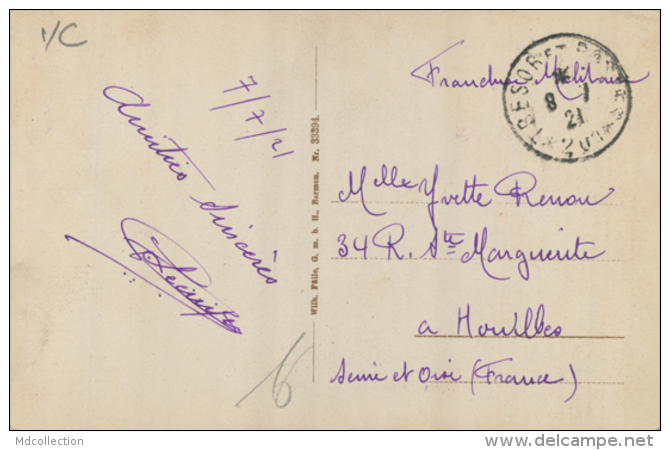 1/C
7/7/21
Amitiés Sincères
Wilh. Fülle, G. m. b. H., Barmen. Nr. 33394.
Franchise Militaire
TRESOR ET POSTES
8 7
21
Melle Yvette Renou
34 R. Ste Marguerite
a Houilles
Seine et Oise (France)
6
Mdcollection
www.delcampe.net